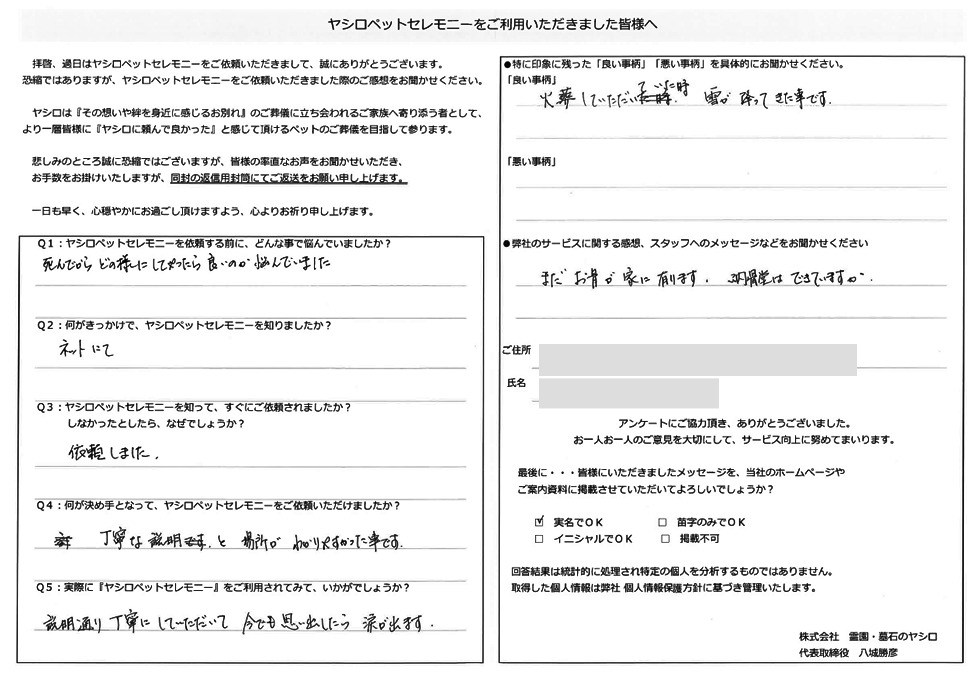 ヤシロペットセレモニーをご利用いただきました皆様へ
拝啓、過日はヤシロペットセレモニーをご依頼いただきまして、誠にありがとうございます。
恐縮ではありますが、ヤシロペットセレモニーをご依頼いただきました際のご感想をお聞かせください。
ヤシロは『その想いや絆を身近に感じるお別れ』のご葬儀に立ち会われるご家族へ寄り添う者として、
より一層皆様に『ヤシロに頼んで良かった』と感じて頂けるペットのご葬儀を目指して参ります。
悲しみのところ誠に恐縮ではございますが、皆様の率直なお声をお聞かせいただき、
お手数をお掛けいたしますが、同封の返信用封筒にてご返送をお願い申し上げます。
一日も早く、心穏やかにお過ごし頂けますよう、心よりお祈り申し上げます。
Q1：ヤシロペットセレモニーを依頼する前に、どんな事で悩んでいましたか？
死んでから どの様にしてやったら良いのか悩んでいました
Q2：何がきっかけで、ヤシロペットセレモニーを知りましたか？
ネットにて
Q3：ヤシロペットセレモニーを知って、すぐにご依頼されましたか？
しなかったとしたら、なぜでしょうか？
依頼しました。
Q4：何が決め手となって、ヤシロペットセレモニーをご依頼いただけましたか？
丁寧な説明と 場所が わかりやすかった事です。
Q5：実際に『ヤシロペットセレモニー』をご利用されてみて、いかがでしょうか？
説明通り丁寧にしていただいて 今でも思い出したら 涙が出ます。
●特に印象に残った「良い事柄」「悪い事柄」を具体的にお聞かせください。
「良い事柄」
火葬していただいていた時 雪が降ってきた事です。
「悪い事柄」
●弊社のサービスに関する感想、スタッフへのメッセージなどをお聞かせください
まだ お骨が家に有ります。 納骨堂はできていますか。
ご住所
氏名
アンケートにご協力頂き、ありがとうございました。
お一人お一人のご意見を大切にして、サービス向上に努めてまいります。
最後に・・・皆様にいただきましたメッセージを、当社のホームページや
ご案内資料に掲載させていただいてよろしいでしょうか？
☑ 実名でOK □ 苗字のみでOK
□ イニシャルでOK □ 掲載不可
回答結果は統計的に処理され特定の個人を分析するものではありません。
取得した個人情報は弊社 個人情報保護方針に基づき管理いたします。
株式会社 霊園・墓石のヤシロ
代表取締役 八城勝彦